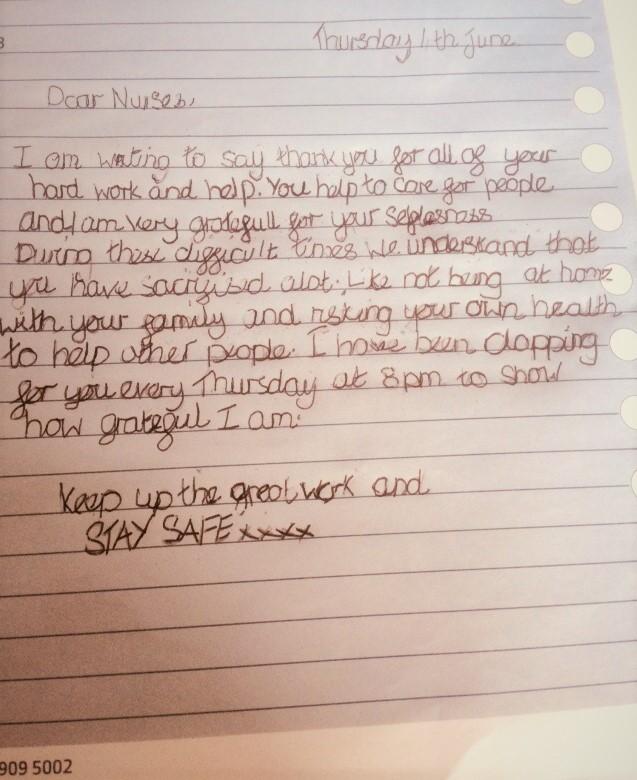 Thursday 11th June
Dear Nurses,
I am writing to say thank you for all of your
hard work and help. You help to care for people
and I am very gratefull for your selflesness
During these difficult times we understand that
you have sacrifised alot. Like not being at home
with your family and risking your own health
to help other people. I have been clapping
for you every Thursday at 8pm to show
how grateful I am.
Keep up the great work and
STAY SAFE xxxx
909 5002